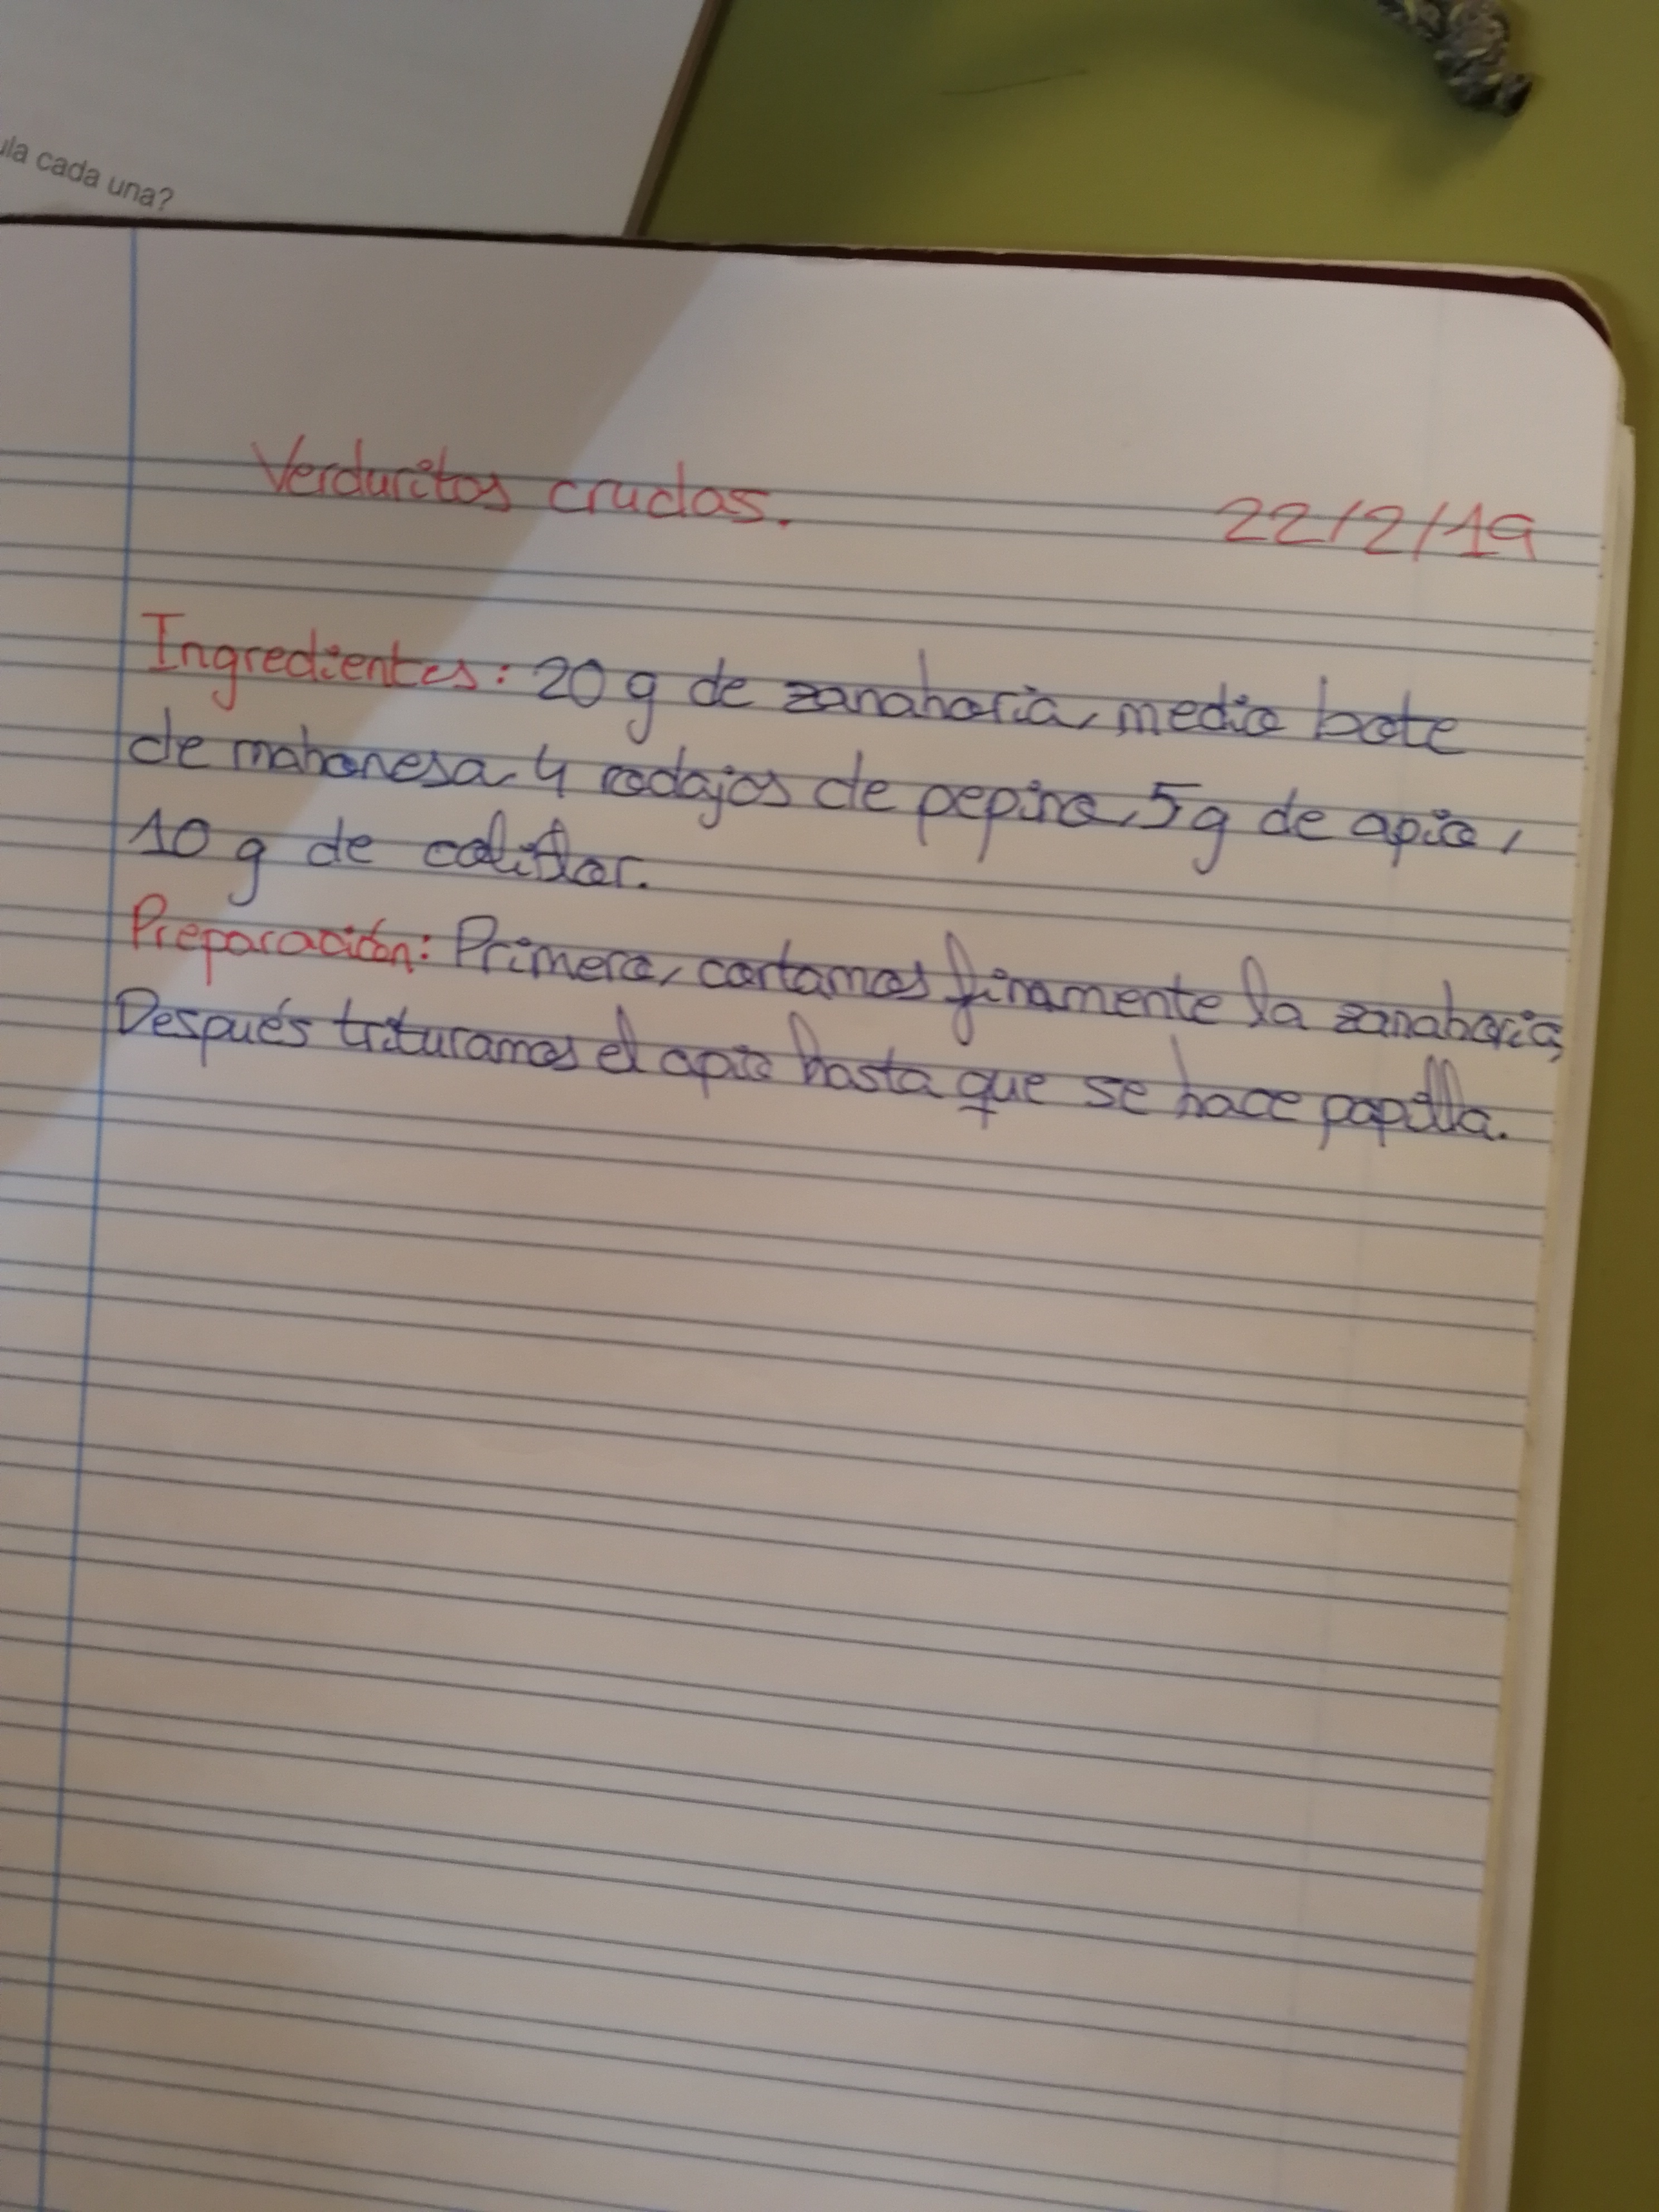 ula cada una?
Verduritas crudas.
22/2/19
Ingredientes: 20 g de zanahoria, medio bote
de mahonesa, 4 rodajas de pepino, 5g de apio,
10 g de coliflor.
Preparación: Primero, cortamos finamente la zanahoria,
Después trituramos el apio hasta que se hace papilla.